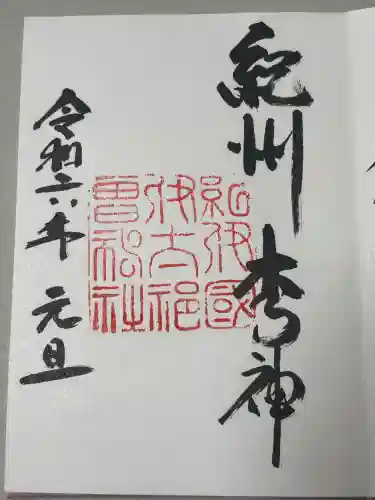 紀州 木の神
紀伊國
伊太祁
曽神社
令和六年 元旦